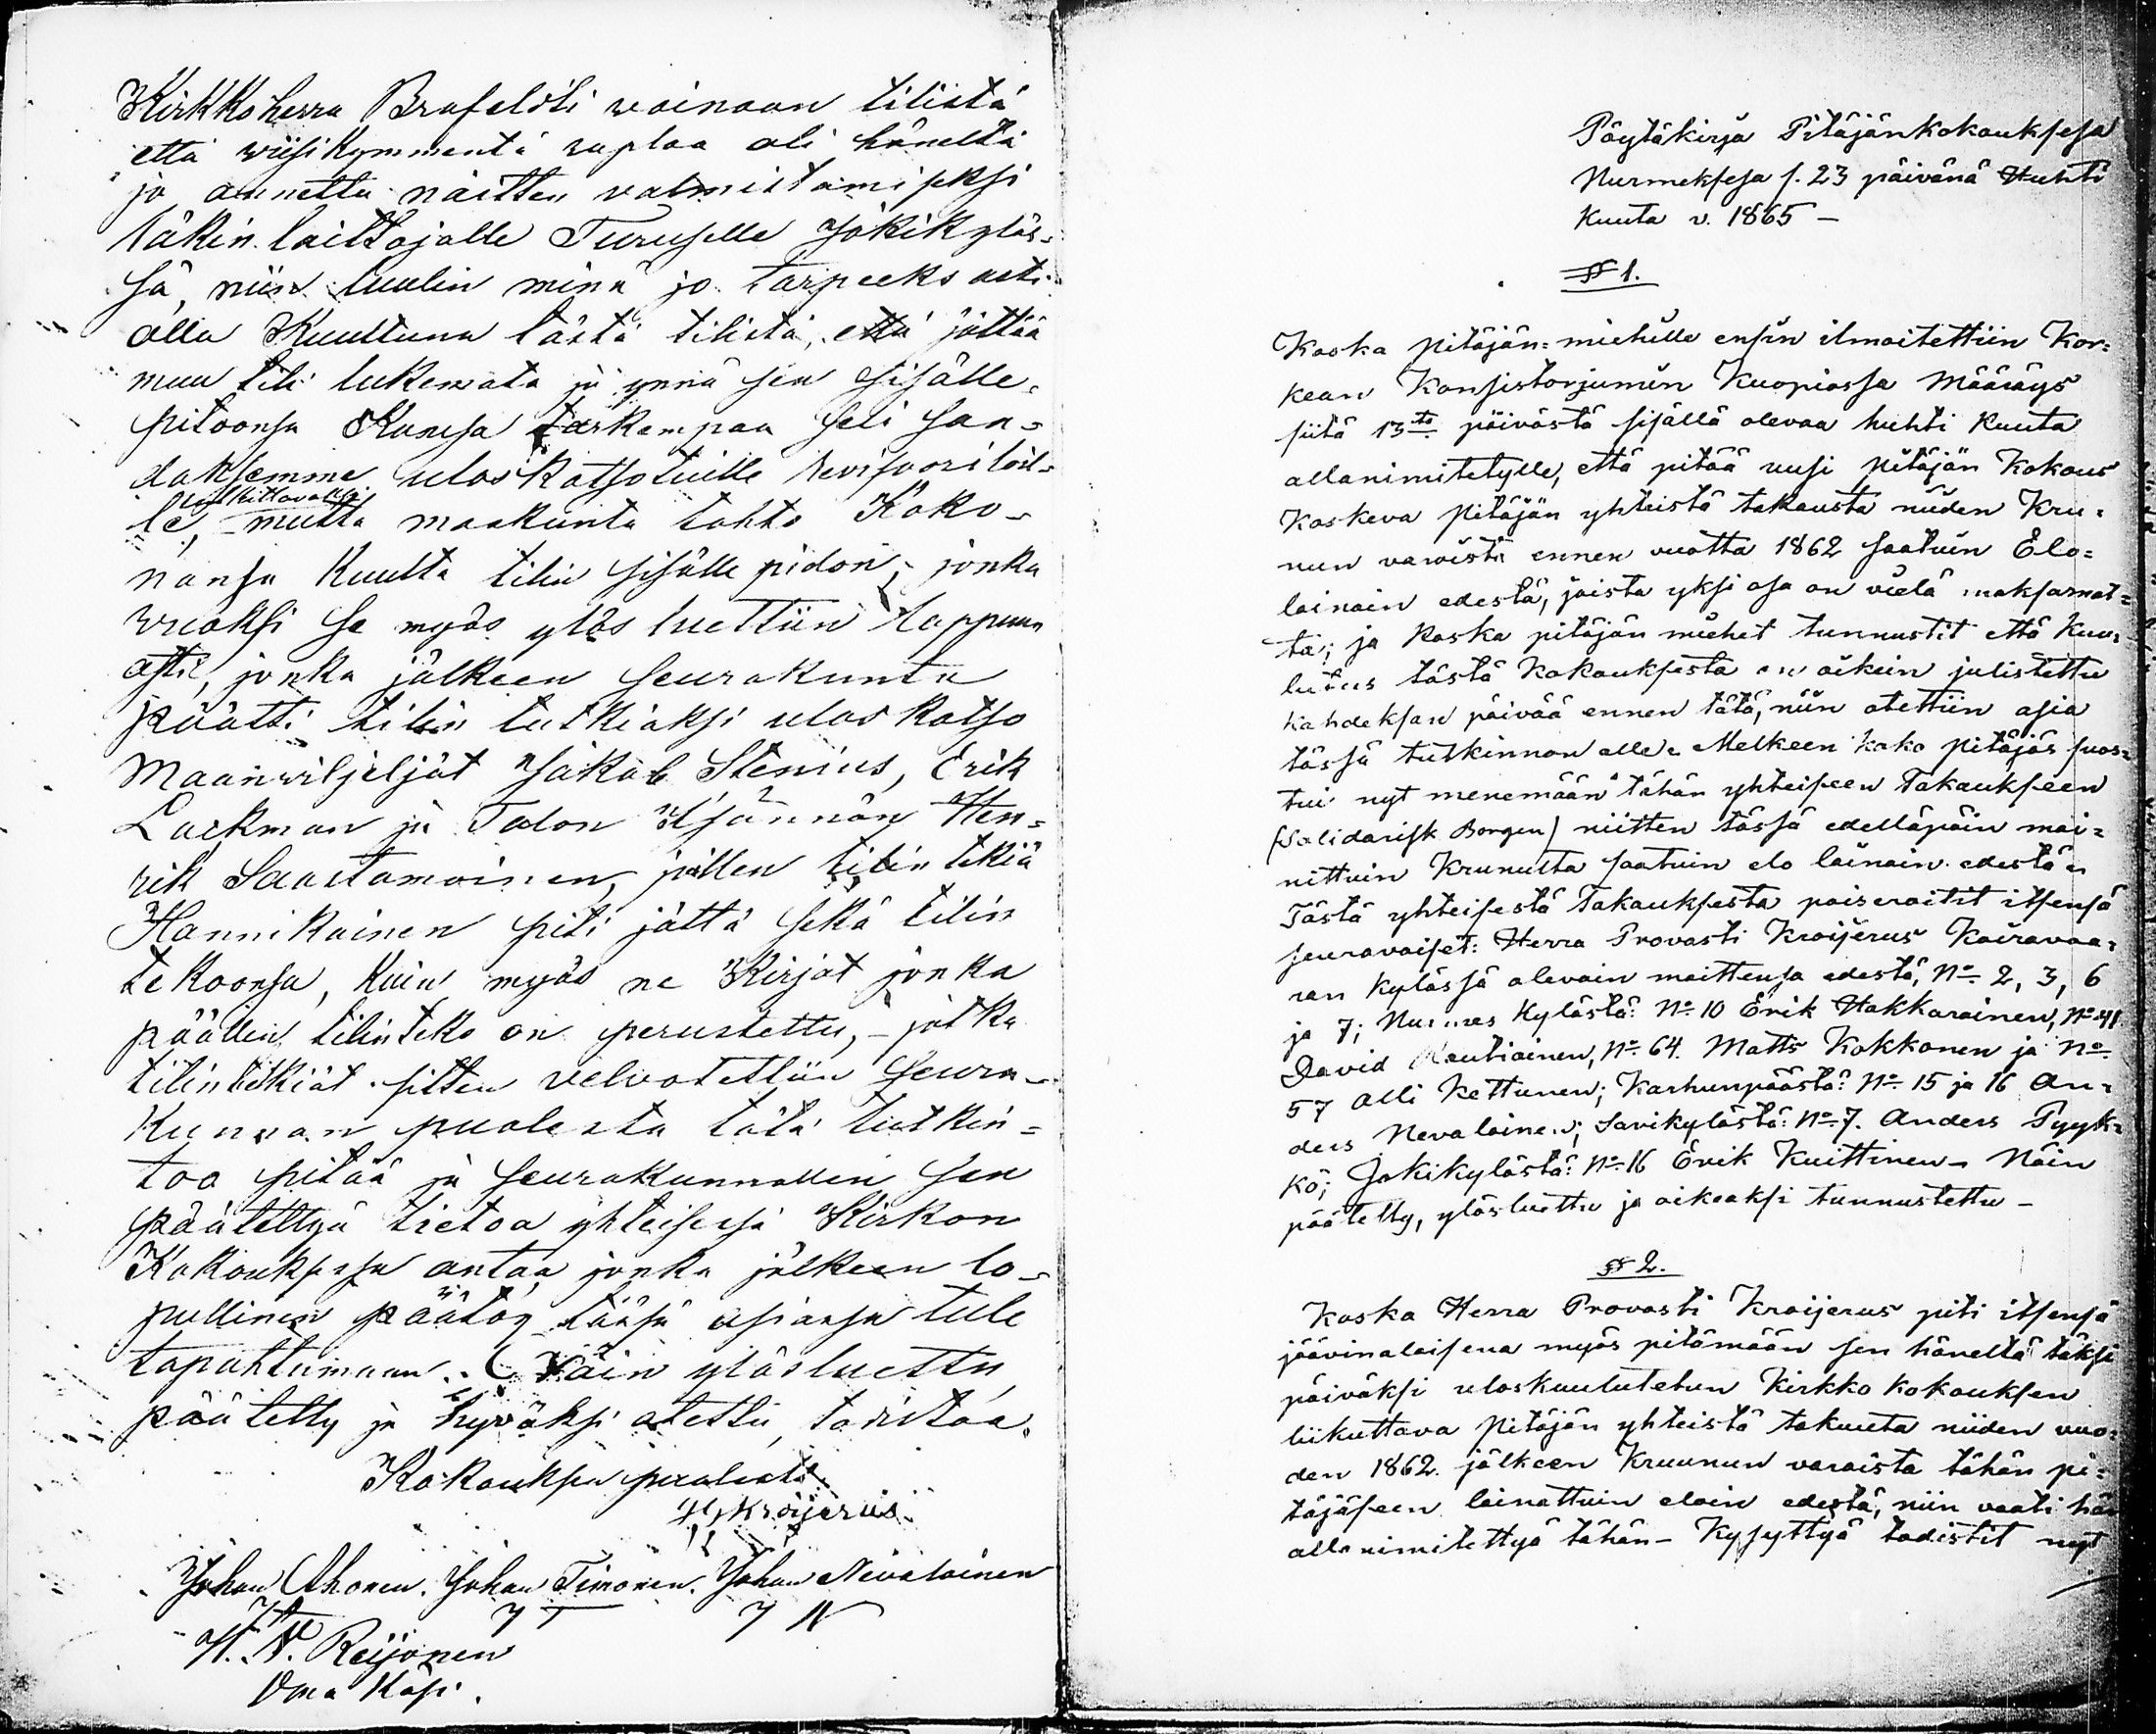 Kirkkoherra Brofeldti wainaan tilistä
että wiisikymmentä ruplaa oli häneltä
jo annettu näitten valmistamiseksi
läkin laittajalle Turuselle Jokikyläs-
sä, niin luulin minä jo tarpeeksi asti
olla Kuultuna tästä tilistä, että jättää
muu tili lukemata ja ynnä sen sisälle-
pitoonsa Kanssa tarkempaa seli saa-
daksemme uloskatsotuille revisooriloil-
le, tutkittavaksi mutta maakunta tahto Koko-
nansa Kuulta tilin sisälle pidon, jonka
wuoksi se myös ylös luettiin loppuun
asti, jonka jälkeen seurakunta
päätti tilin tutkiaksi ulos katso
Maanwiljeljät Jakob Stenius, Erik
Lackman ja Talon Isännän Hen-
rik Saastamoinen, jillen tilin tekiä
Hannikainen piti jättä sekä tilin
tekoonsa, Kuin myös ne Kirjat jonka
päällen tilinteko on perustettu, - jotka
tilintutkiat sitten velvotettiin Seura-
Kunnan puolesta tätä tutkin-
too pitää ja seurakunnallen sen
päätettyä tietoa yhteisessä Kirkon
Kokouksessa antaa jonka jälkeen lo-
pullinen päätös tässä asiassa tule
tapahtumaan. Näin ylösluettu
päätetty ja hyväksi otettu, todistaa.
Kokouksen puolesta
Hj Kroijerus.
Johan Ahonen. Johan Timonen. Johan Nevalainen
J A J T J N
H. N. Reijonen
Oma Käsi.
Pöytäkirja Pitäjänkokouksesa
Nurmeksesa s. 23 päivänä Huhti
Kuuta v. 1865 -
§ 1.
Koska pitäjän-miehille ensin ilmoitettiin Kor-
kean Konsistorjumin Kuopiossa Määräys
siitä 13to päivästä sisällä olevaa huhti kuuta
allanimitetylle, että pitää uusi pitäjän Kokous
Koskeva pitäjän yhteistä takausta niiden Kru-
nun varoista ennen vuotta 1862 saatuin Elo-
lainain edestä, joista yksi osa on vielä maksamat-
ta; ja Koska pitäjän miehet tunnustit että Kuu-
lutus tästä Kokouksesta on oikein julistettu
kahdeksan päivää ennen tätä, niin otettiin asia
tässä tutkinnon alle. Melkeen koko pitäjäs suos-
tui nyt menemään tähän yhteiseen Takaukseen
(Solidarisk Borgen) niitten tässä edelläpäin mai-
nittuin Krunulta saatuin elo lainain edestä.
Tästä yhteisestä Takauksesta poiseroitit itsensä
seuravaiset: Herra Provasti Kroijerus Koiravaa-
ran Kylässä olevain maittensa edestä, No 2, 3, 6
ja 7; Nurmes Kylästä: No 10 Erik Hakkarainen, No 41
David Rautiainen, No 64. Matts Kokkonen ja No
57 Olli Kettunen; Karhunpäästä: No 15 ja 16 An-
ders Nevalainen; Savikylästä: No 7. Anders Pyyk-
kö; Jokikylästä: No 16 Erik Kuittinen - Näin
päätetty, ylösluettu ja oikeaksi tunnustettu -
§ 2.
Koska Herra Provasti Kroijerus piti itsensä
jäävinalaisena myös pitämään sen häneltä täksi
päiväksi uloskuulutetun Kirkko kokouksen
liikuttava pitäjän yhteistä takuuta niiden vuo-
den 1862. jälkeen Kruunun varoista tähän pi-
täjäseen lainattuin eloin edestä, niin vaati hän
allanimitettyä tähän - Kysyttyä todistit nyt